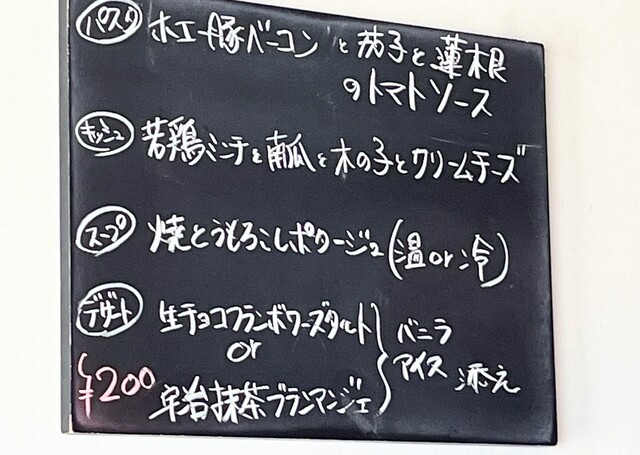 パスタ ホエー豚ベーコンと茄子と蓮根
のトマトソース
キッシュ 若鶏ミンチと南瓜と木の子とクリームチーズ
スープ 焼とうもろこしポタージュ(温or冷)
デザート 生チョコフランボワーズタルト
or
¥200 宇治抹茶ブランマンジェ
バニラ
アイス 添え